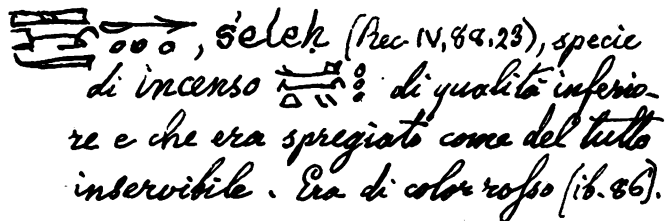 , s'eleḥ (Rec. IV, 88.23), specie
di incenso di qualità inferio-
re e che era spregiato come del tutto
inservibile. Era di color rosso (ib. 86).